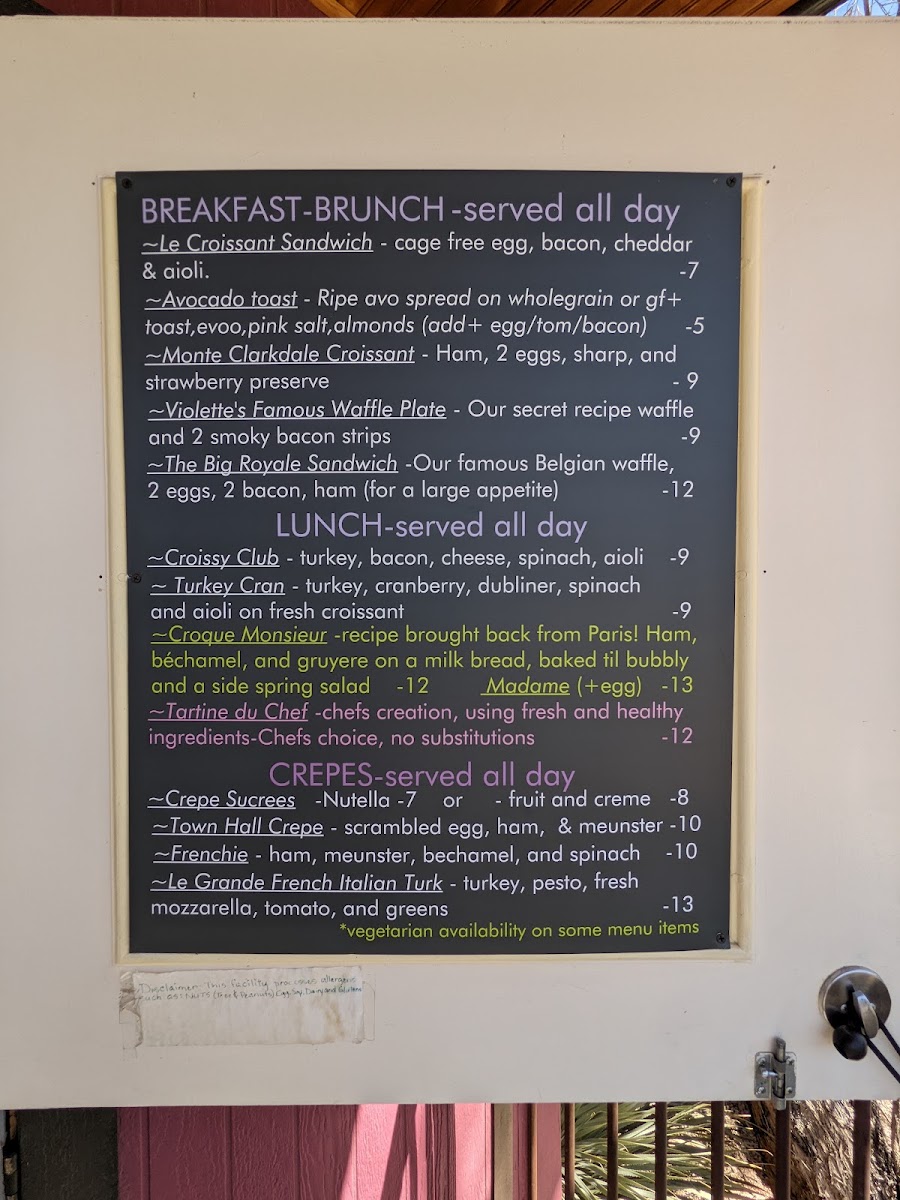 BREAKFAST-BRUNCH-served all day
~Le Croissant Sandwich - cage free egg, bacon, cheddar
& aioli. -7
~Avocado toast - Ripe avo spread on wholegrain or gf+
toast,evoo,pink salt,almonds (add+ egg/tom/bacon) -5
~Monte Clarkdale Croissant - Ham, 2 eggs, sharp, and
strawberry preserve - 9
~Violette's Famous Waffle Plate - Our secret recipe waffle
and 2 smoky bacon strips -9
~The Big Royale Sandwich -Our famous Belgian waffle,
2 eggs, 2 bacon, ham (for a large appetite) -12
LUNCH-served all day
~Croissy Club - turkey, bacon, cheese, spinach, aioli -9
~ Turkey Cran - turkey, cranberry, dubliner, spinach
and aioli on fresh croissant -9
~Croque Monsieur -recipe brought back from Paris! Ham,
béchamel, and gruyere on a milk bread, baked til bubbly
and a side spring salad -12 Madame (+egg) -13
~Tartine du Chef -chefs creation, using fresh and healthy
ingredients-Chefs choice, no substitutions -12
CREPES-served all day
~Crepe Sucrees -Nutella -7 or - fruit and creme -8
~Town Hall Crepe - scrambled egg, ham, & meunster -10
~Frenchie - ham, meunster, bechamel, and spinach -10
~Le Grande French Italian Turk - turkey, pesto, fresh
mozzarella, tomato, and greens -13
*vegetarian availability on some menu items
Disclaimer- This facility processes allergens
such as: NUTS (Tree & Peanuts) Egg, Soy, Dairy and Gluten